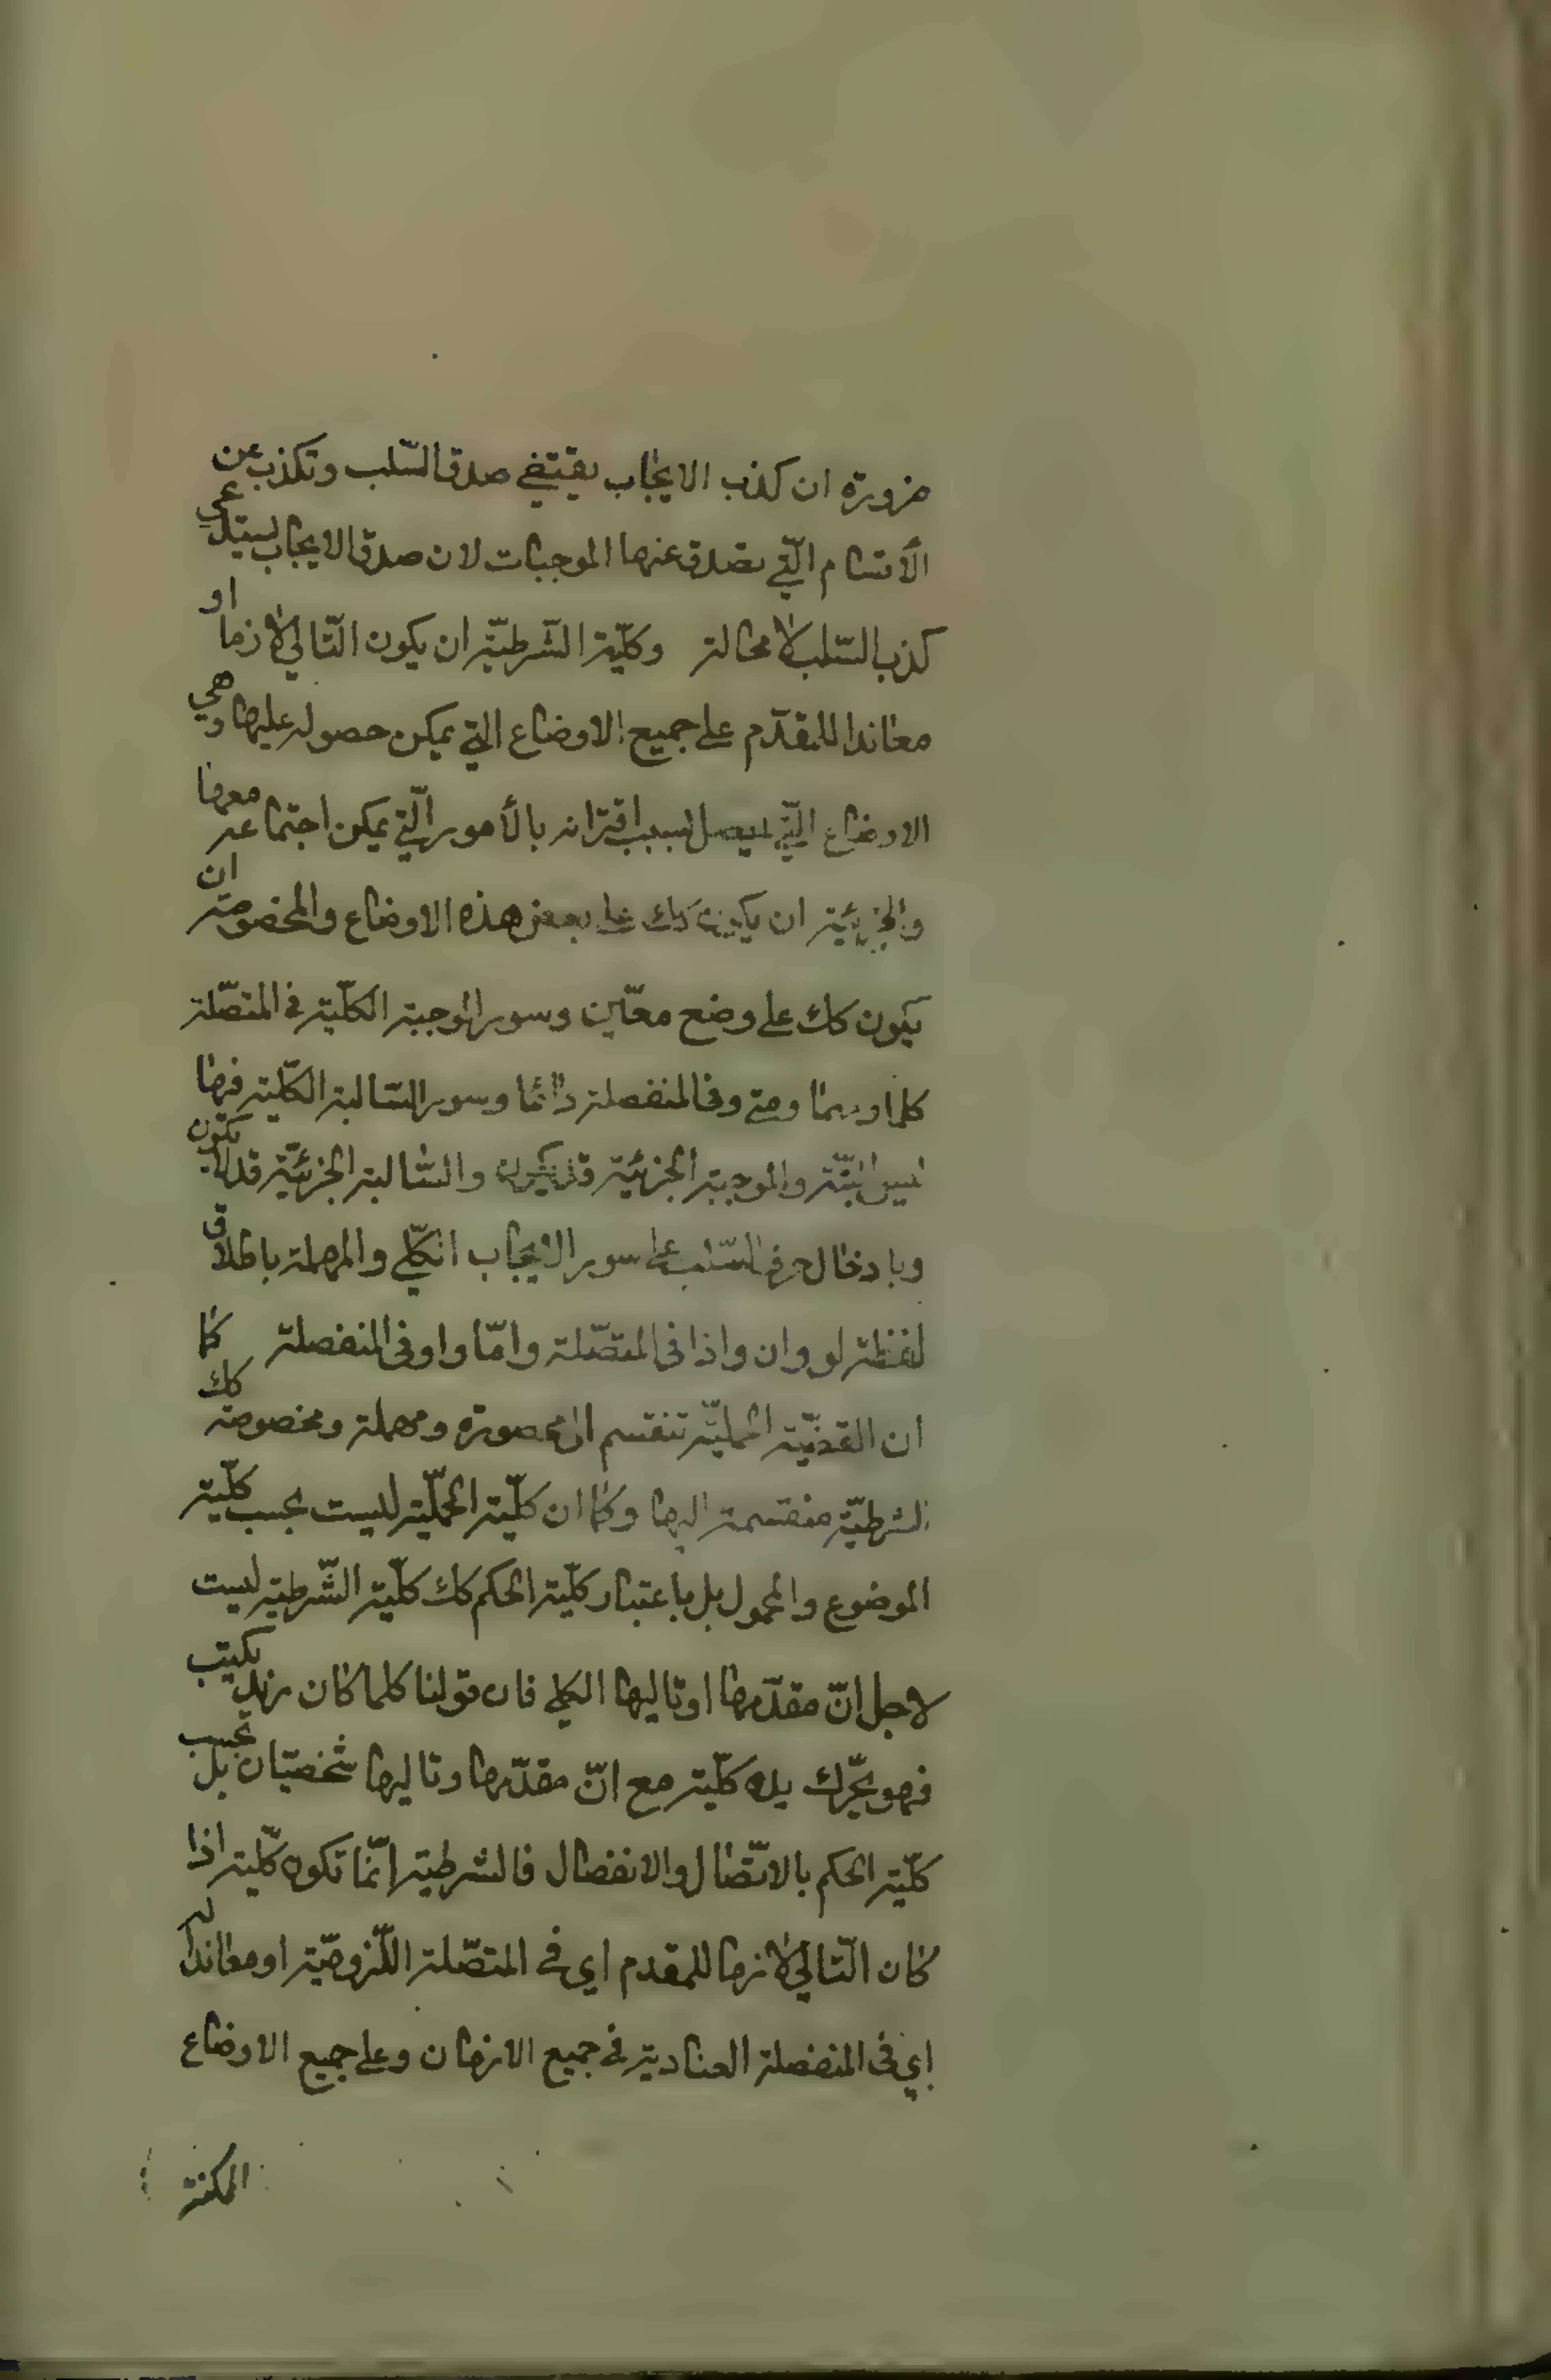 ضرورة ان كذب الايجاب يقتضي صدق السّلب وتكذب عن
الأقسام الّتي تصدق عنها الموجبات لان صدق الايجاب يستدعي
كذب السّلب لا محالة وكلّية الشّرطيّة ان يكون التّالي لازما او
معاندا للمقدّم على جميع الاوضاع التي يمكن حصوله عليها وهي
الاوضاع الّتي تحصل بسبب اقترانه بالأمور الّتي يمكن اجتماعه معها
والجزئية ان يكون كك على بعض هذه الاوضاع والمخصوصة ان
يكون كك على وضع معيّن وسور الموجبة الكلّية في المتّصلة
كلما ومهما ومتى وفي المنفصلة دائما وسور السّالبة الكلّية فيهما
ليس البتّة والموجبة الجزئية قد يكون والسّالبة الجزئيّة قد لا يكون
وبادخال حرف السّلب على سور الايجاب الكلّي والمهملة باطلاق
لفظة لو وان واذا في المتّصلة وامّا واو في المنفصلة كما
ان القضيّة الحمليّة تنقسم الى محصورة ومهملة ومخصوصة كك
الشرطيّة منقسمة اليها وكما ان كلّية الحمليّة ليست بحسب كلّية
الموضوع والمحمول بل باعتبار كلّية الحكم كك كلّية الشّرطية ليست
لاجل انّ مقدّمها او تاليها الكلي فان قولنا كلما كان زيد يكتب
فهو يحرّك يده كلّية مع انّ مقدّمها وتاليها شخصيّان بل بحسب
كلّية الحكم بالاتّصال والانفصال فالشرطية انّما تكون كلّية اذا
كان التّالي لازما للمقدم اي في المتّصلة اللّزوميّة او معاندا له
اي في المنفصلة العنادية في جميع الازمان وعلى جميع الاوضاع
الممكنة